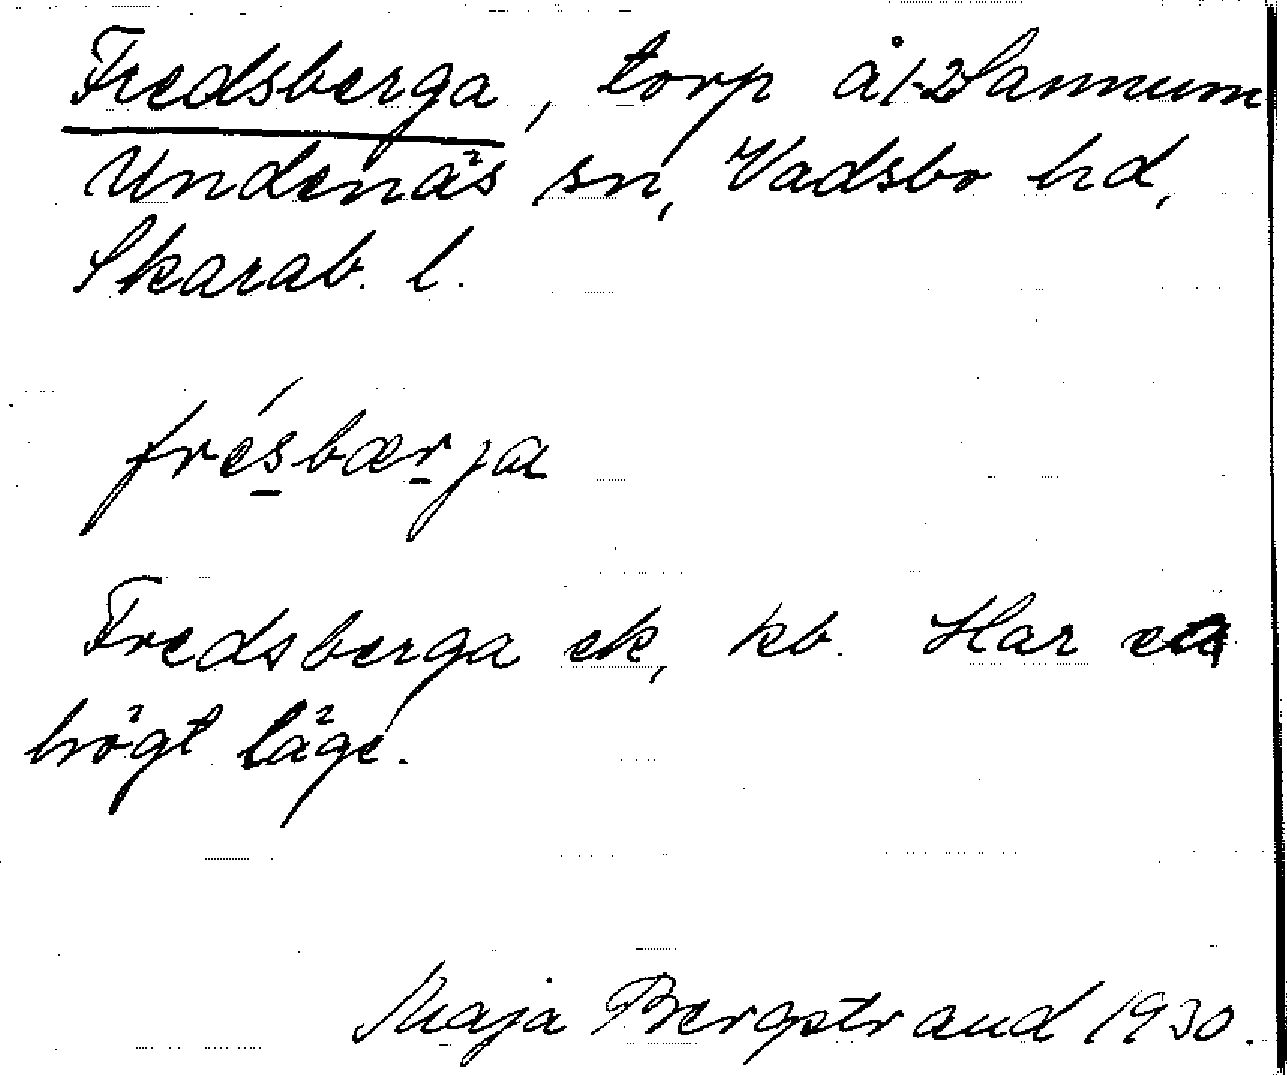 Fredsberga, torp å 1-2 Sannum
Undenäs sn, Vadsbo hd,
Skarab. l.
frésbærja
Fredsberga ek, kb. Har
högt läge.
Maja Bergstrand 1930.